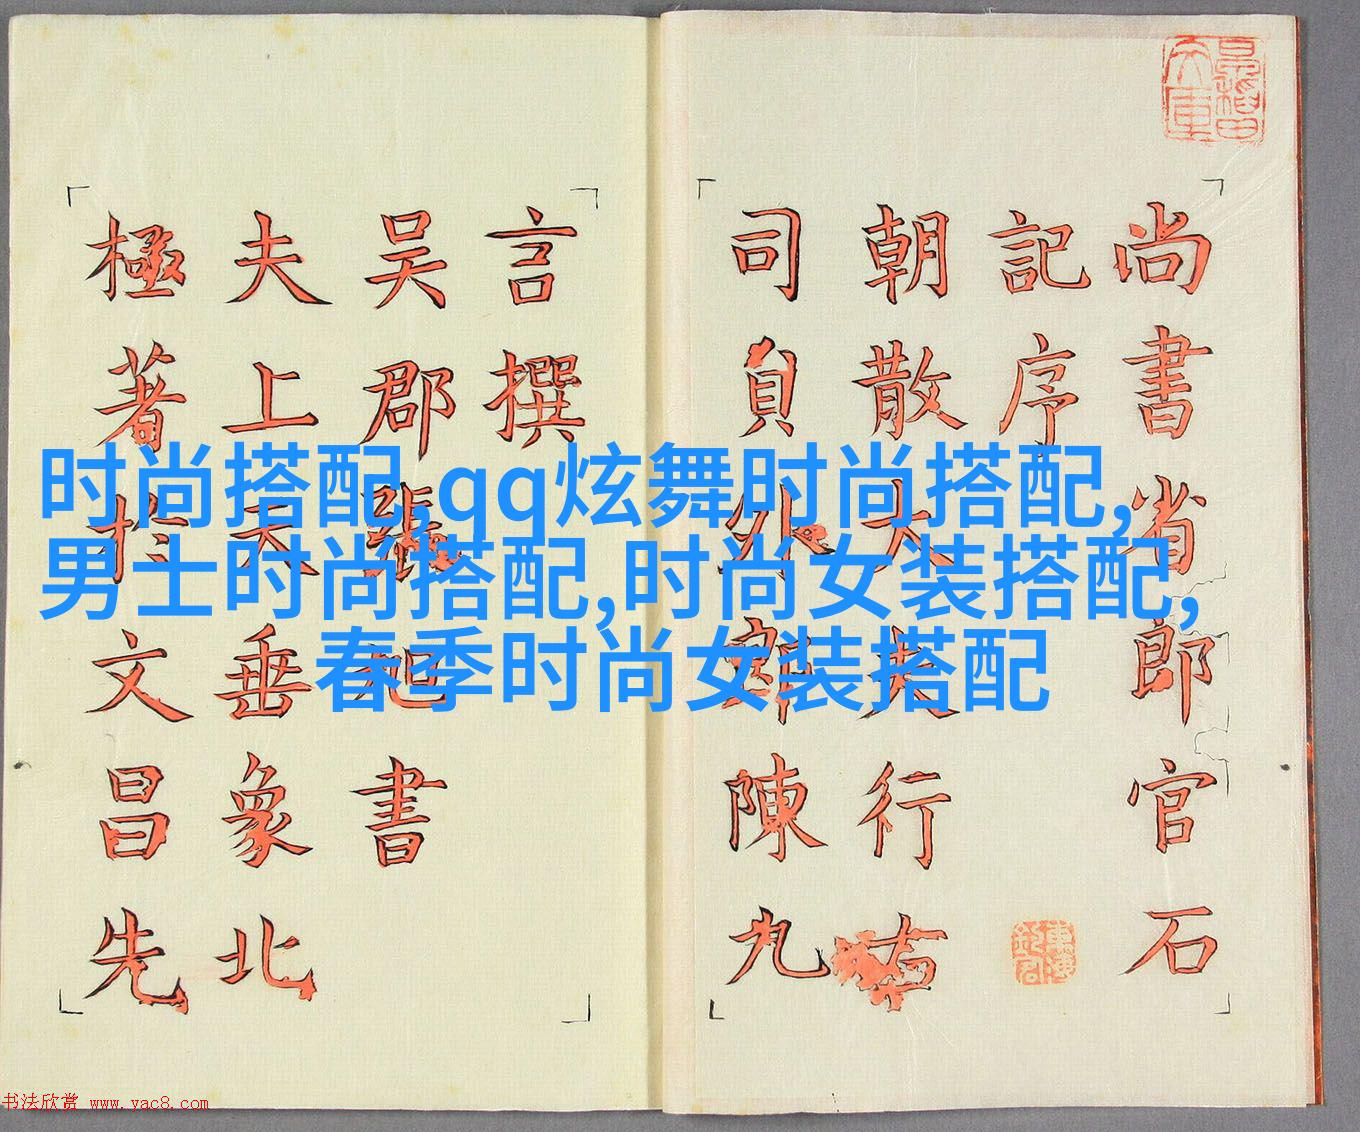 尚書省郎官石
記序
朝散大夫行右
司員外郎陳九
言撰
吴郡張旭書
夫上天垂象北
極著扵文昌先
时尚搭配,qq炫舞时尚搭配,
男士时尚搭配,时尚女装搭配,
春季时尚女装搭配
书法欣赏 www.yac8.com